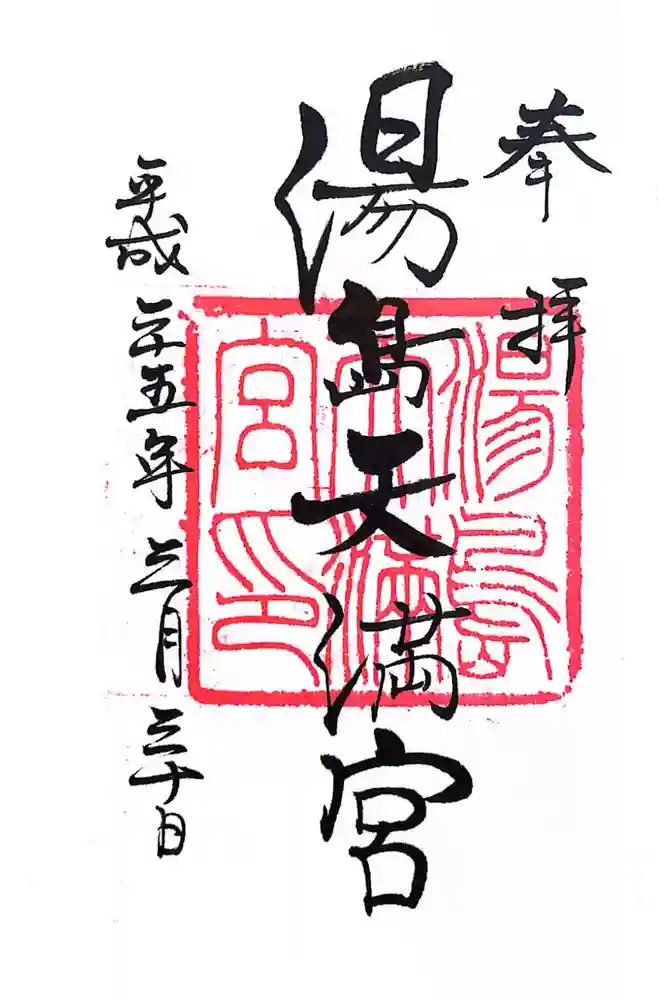 奉拝
湯島天満宮
平成二十五年三月三十日
湯島
天満
宮印